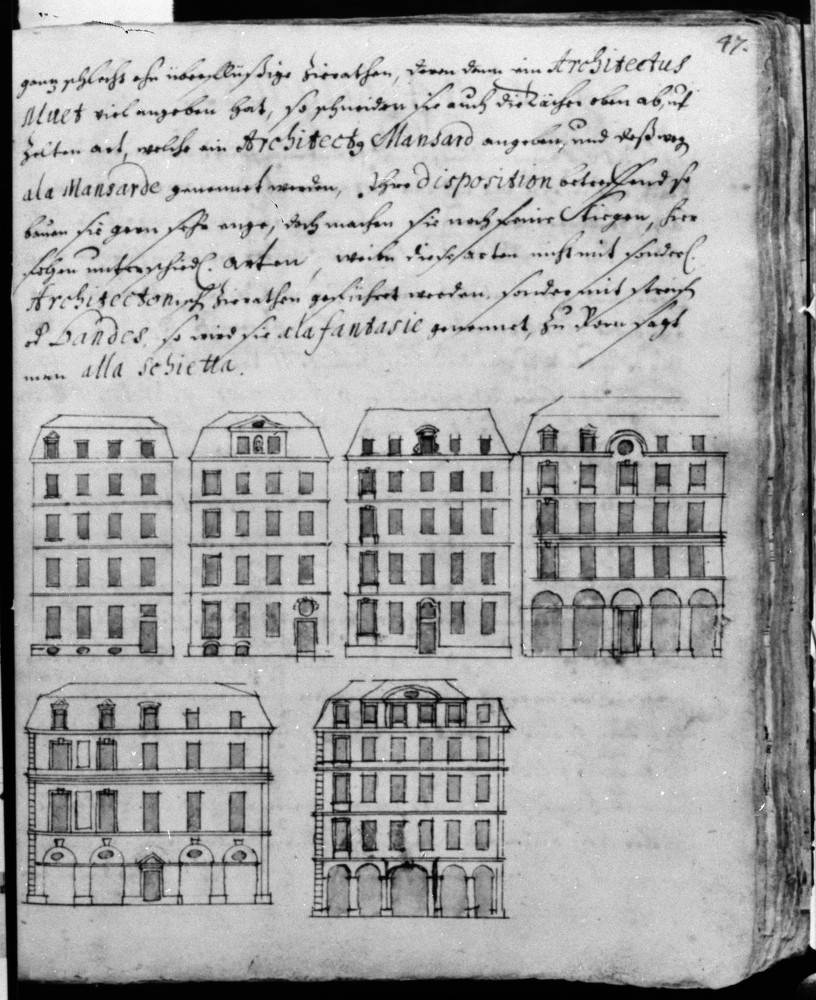 47.
ganz schlecht ohn überflüßige Zierathen, deren dann ein Architectus
Muet viel angeben hat, so schneiden sie auch die Dächer oben ab, uf
Zelten art, welche ein Architectg Mansard angeben, und deßweg
ala Mansarde genennet werden, Ihre disposition betreffend so
bauen sie gern sehr enge, doch machen sie noch feine Stiegen, hier
folgen unterschiedl. arten, weiln diese arten nicht mit sonderl.
Architectonisch Zierathen geführet werden, sondern mit streich
Bandes, so wird sie ala fantasie genennet, zu Rom sagt
man alla schietta.